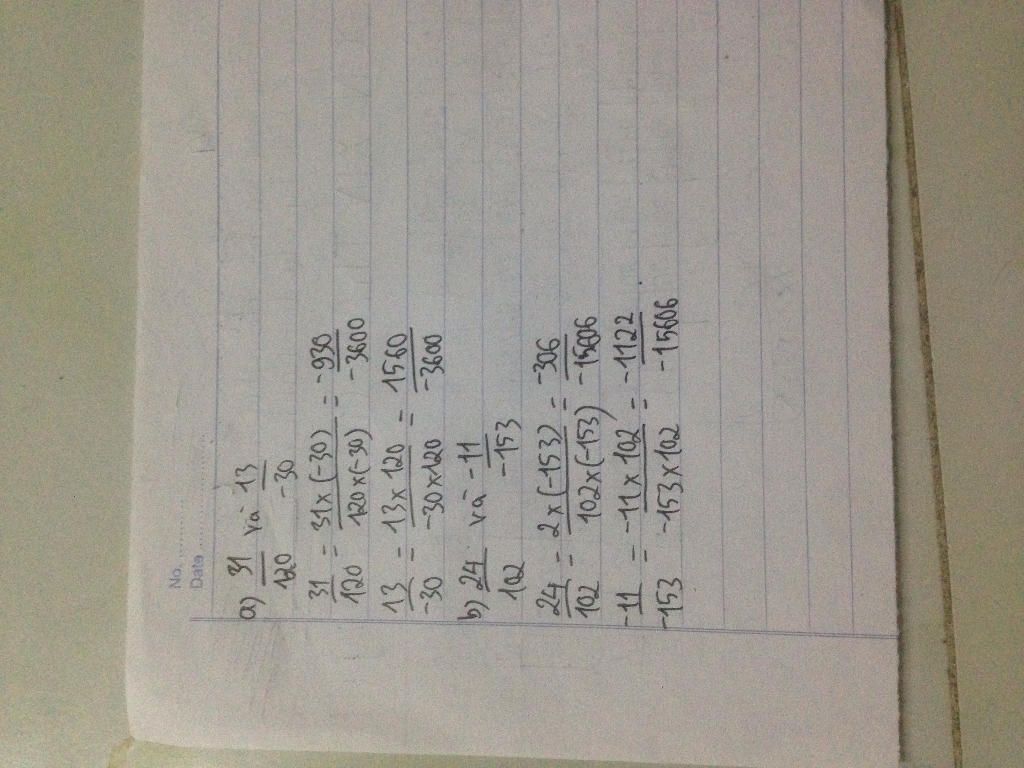 No.
Date
a) 31/120 và 13/-30
31/120 = 31 x (-30)/120 x (-30) = -930/-3600
13/-30 = 13 x 120/-30 x 120 = 1560/-3600
b) 24/102 và -11/-153
24/102 = 2 x (-153)/102 x (-153) = -306/-15606
-11/-153 = -11 x 102/-153 x 102 = -1122/-15606